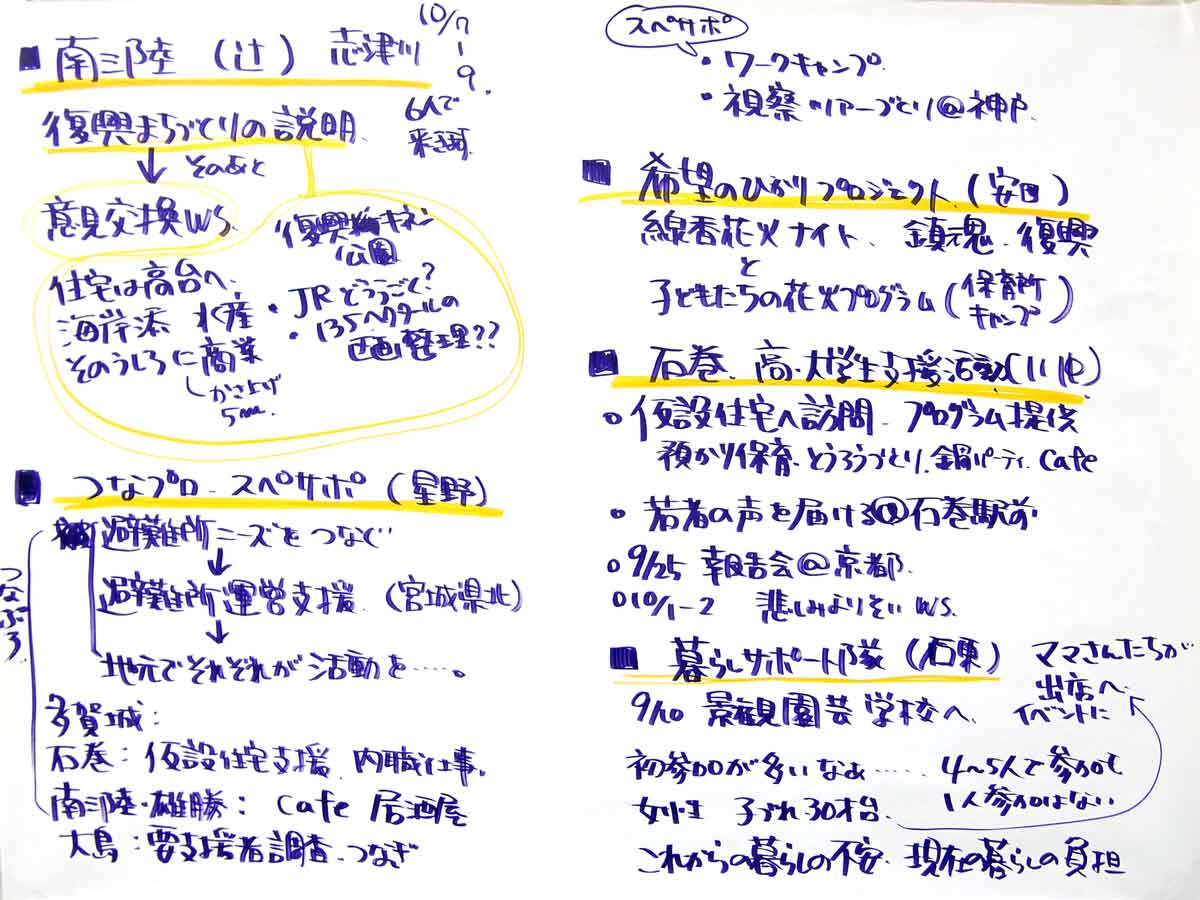 ■ 南三陸（辻）志津川
10/7
|
9.
6人で
来宝塚
復興まちづくりの説明
↓ そのあと
意見交換WS.
復興祈ネン
公園
住宅は高台へ、
海岸添 水産
そのうしろに商業
かさ上げ
5m.
・JRどううごく?
・135ヘクタールの
区画整理??
■ つなプロ. スペサポ（星野）
避難所ニーズをつなぐ
↓
避難所運営支援（宮城県北）
↓
地元でそれぞれが活動を……。
つなぷろ
多賀城:
石巻: 仮設住宅支援. 内職仕事.
南三陸・雄勝: Cafe 居酒屋
大島: 要支援者調査. つなぎ
スペサポ
・ワークキャンプ
・視察ツアーづくり@神戸
■ 希望のひかりプロジェクト（安田）
線香花火ナイト、鎮魂. 復興
と
子どもたちの花火プログラム（保育所
キャンプ）
■ 石巻. 高・大学生支援活動（いしゆ）
○ 仮設住宅へ訪問. プログラム提供
預かり保育. とうろうづくり. 鍋パーティ. Cafe
○ 若者の声を届ける@石巻駅前
○ 9/25 報告会@京都.
○ 10/1-2 悲しみよりそいWS.
■ 暮らしサポート隊（石東）
ママさんたちが
出店へ.
イベントに
9/10 景観園芸学校へ.
初参加が多いなぁ……
4〜5人で参加も
1人参加はない
女性 子づれ30才台.
これからの暮らしの不安. 現在の暮らしの負担